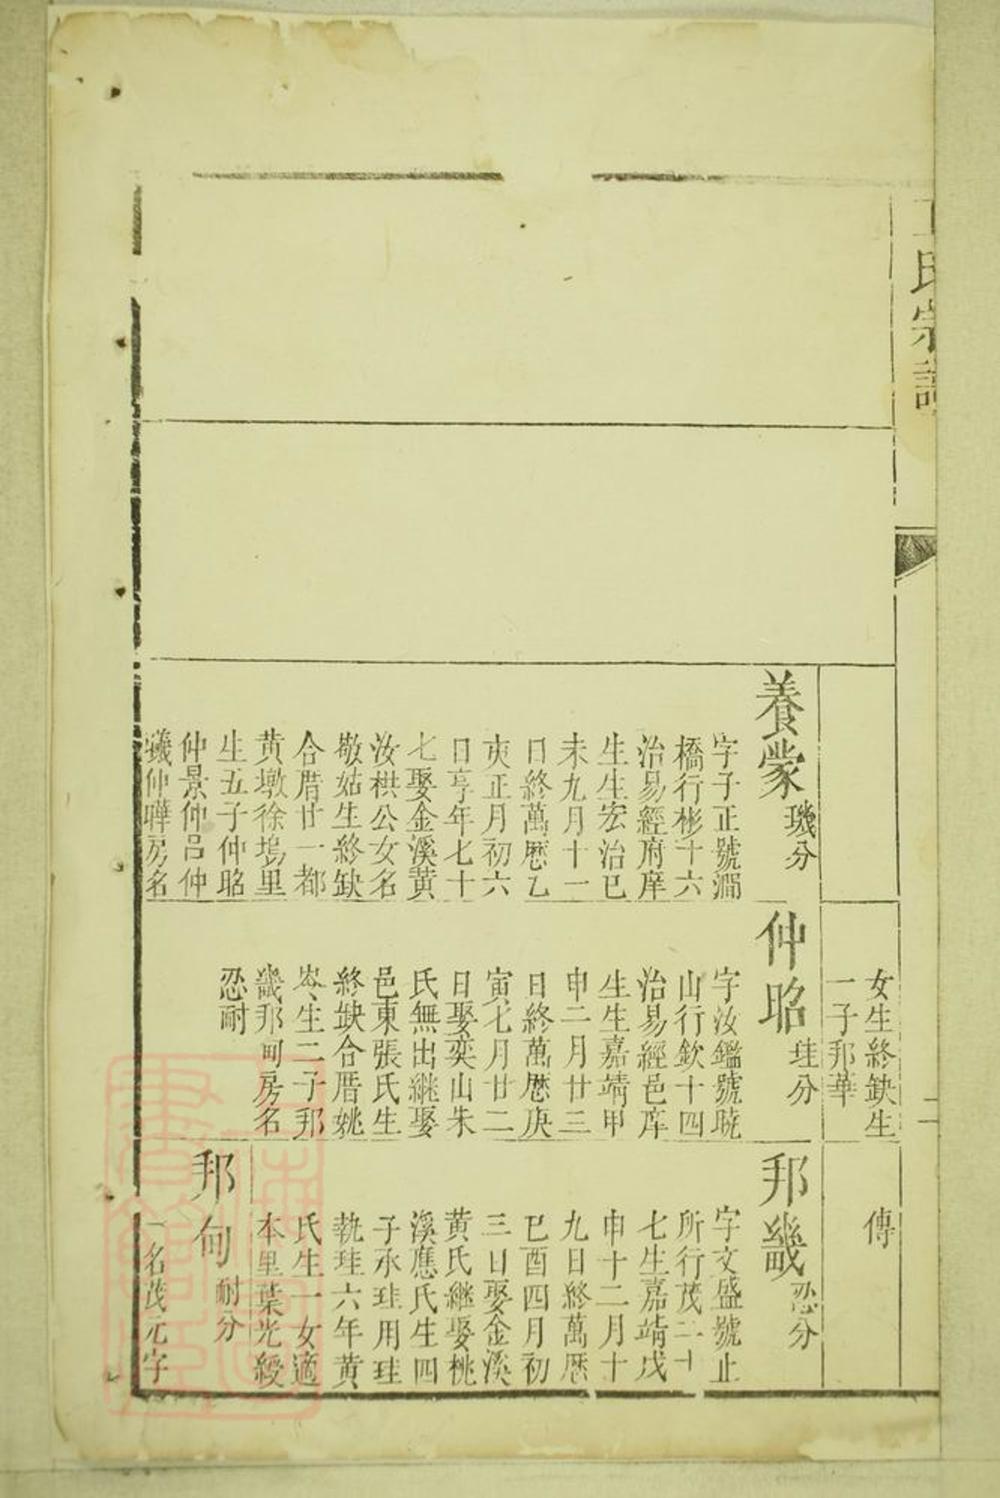 氏宗譜
二
養蒙
璣分
字子正號澗
橋行彬十六
治易經府庠
生生宏治巳
未九月十一
日終萬厯乙
亥正月初六
日享年七十
七娶金溪黃
汝栱公女名
敬姑生終缺
合厝廿一都
黃墩徐塢里
生五子仲昭
仲景仲呂仲
羲仲曄房名
女生終缺生
一子邦華
仲昭
珪分
字汝鑑號曉
山行欽十四
治易經邑庠
生生嘉靖甲
申二月廿三
日終萬厯庚
寅七月廿二
日娶奕山朱
氏無出繼娶
邑東張氏生
終缺合厝姚
岺生二子邦
畿邦甸房名
忍耐
傳
邦畿
忍分
字文盛號止
所行茂二十
七生嘉靖戊
申十二月十
九日終萬厯
巳酉四月初
三日娶金溪
黃氏繼娶桃
溪應氏生四
子承珪用珪
執珪六年黃
氏生一女適
本里葉光綬
邦甸
耐分
一名茂元字